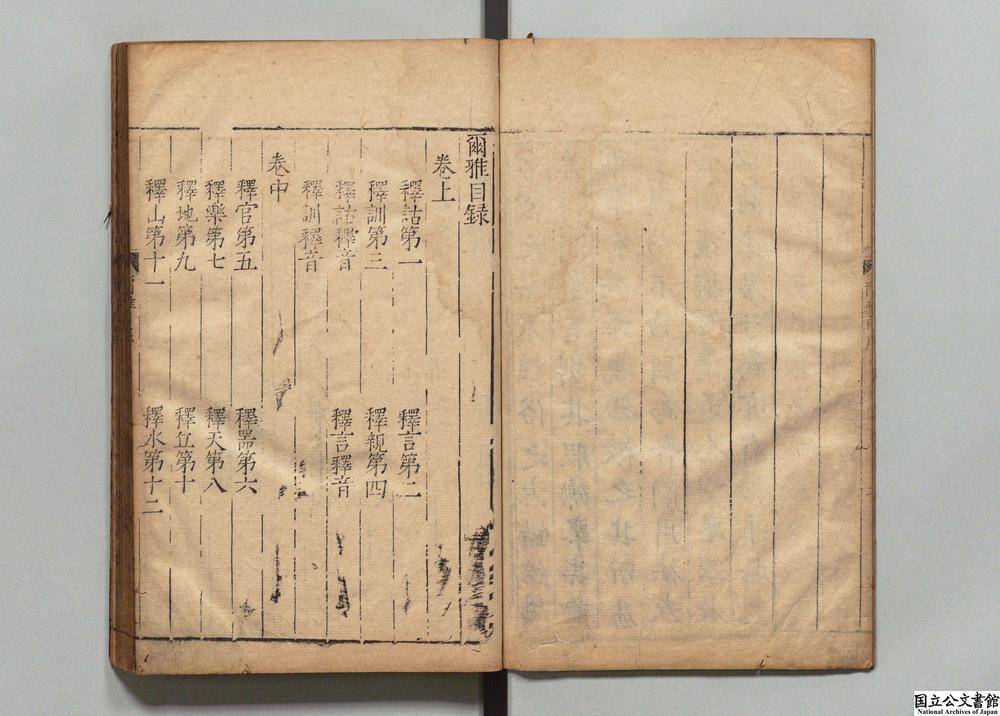 爾雅目録
卷上
釋詁第一 釋言第二
釋訓第三 釋親第四
釋詁釋音 釋言釋音
釋訓釋音
卷中
釋宮第五 釋器第六
釋樂第七 釋天第八
釋地第九 釋丘第十
釋山第十一 釋水第十二
国立公文書館
National Archives of Japan